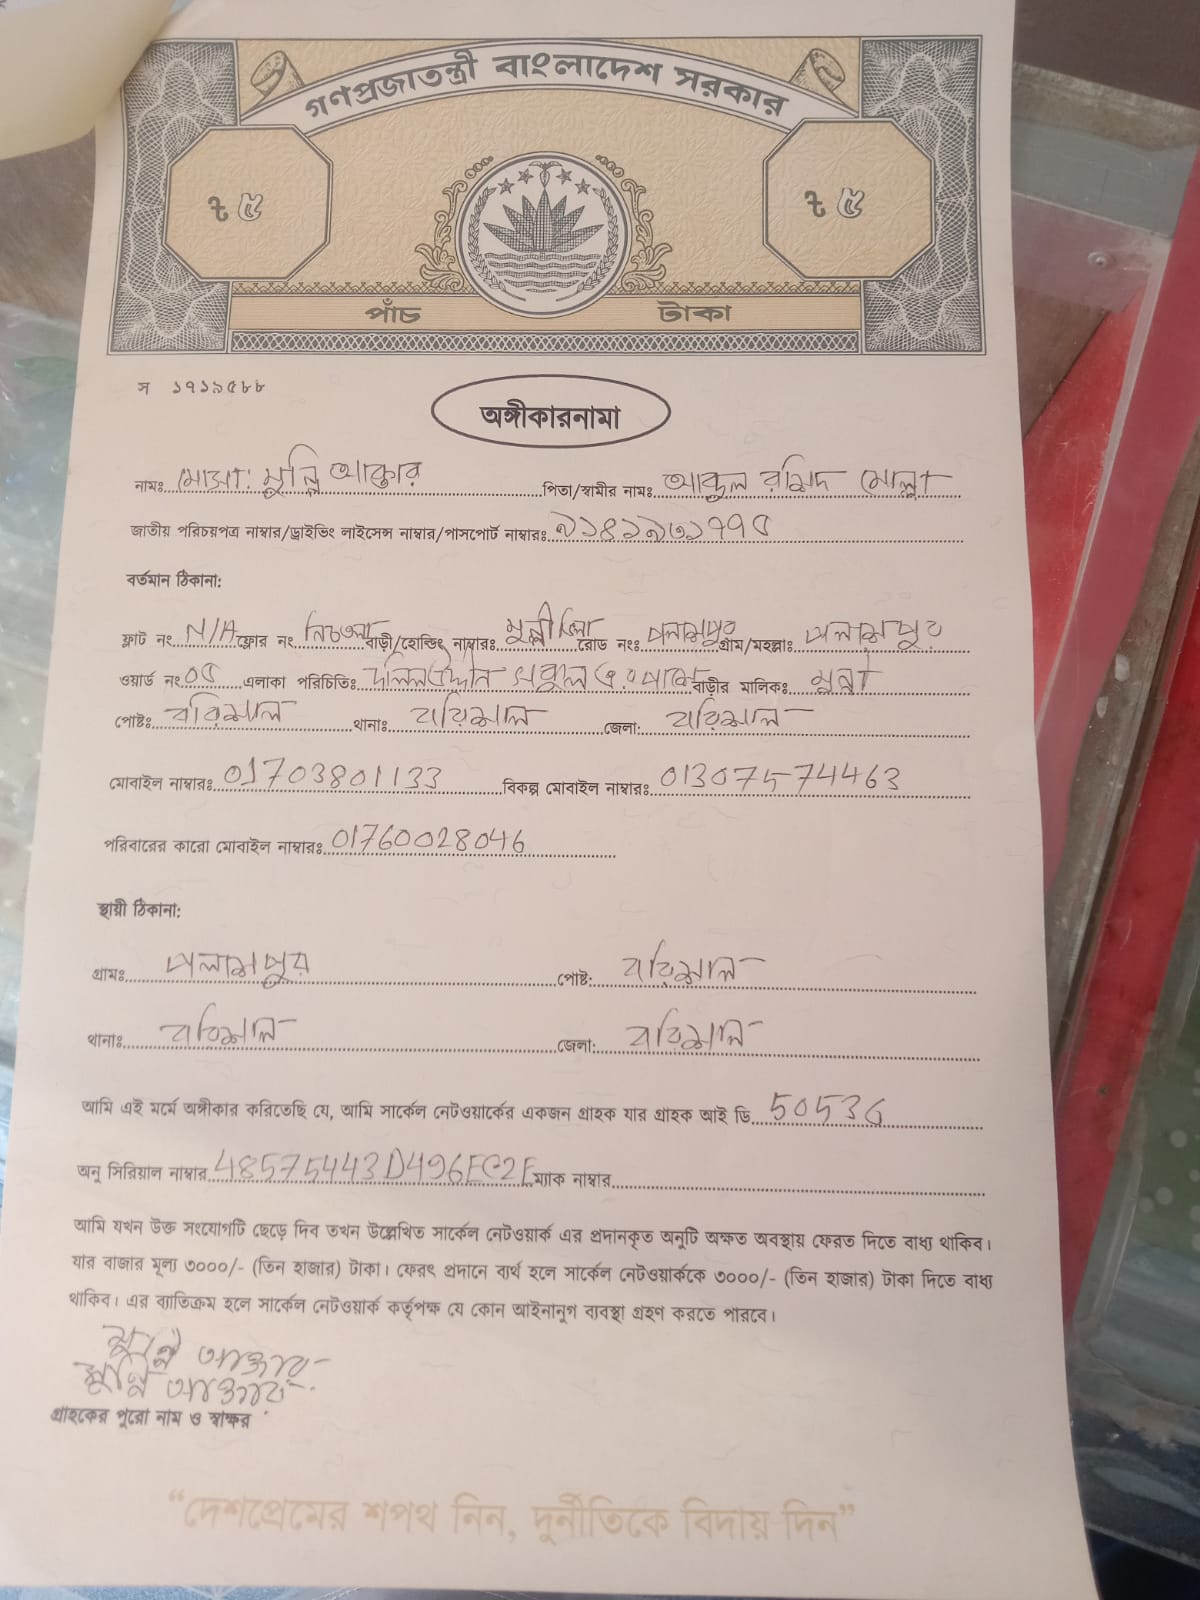 গণপ্রজাতন্ত্রী বাংলাদেশ সরকার
৳ ৫ ৳ ৫
পাঁচ টাকা
স ১৭১৯৫৮৮
অঙ্গীকারনামা
নামঃ মোসা: মুন্নি আক্তার পিতা/স্বামীর নামঃ আব্দুল রশিদ মোল্লা
জাতীয় পরিচয়পত্র নাম্বার/ড্রাইভিং লাইসেন্স নাম্বার/পাসপোর্ট নাম্বারঃ ৯১৪১৯৩১৭৭৫
বর্তমান ঠিকানা:
ফ্লাট নং N/A ফ্লোর নং নিচতলা বাড়ী/হোল্ডিং নাম্বারঃ রোড নংঃ পলাশপুর গ্রাম/মহল্লাঃ পলাশপুর
ওয়ার্ড নং ০৫ এলাকা পরিচিতিঃ বাড়ীর মালিকঃ মুন্না
পোষ্টঃ বরিশাল থানাঃ বরিশাল জেলা: বরিশাল
মোবাইল নাম্বারঃ 01703801133 বিকল্প মোবাইল নাম্বারঃ 01307574463
পরিবারের কারো মোবাইল নাম্বারঃ 01760028046
স্থায়ী ঠিকানা:
গ্রামঃ পলাশপুর পোষ্ট: বরিশাল
থানাঃ বরিশাল জেলা: বরিশাল
আমি এই মর্মে অঙ্গীকার করিতেছি যে, আমি সার্কেল নেটওয়ার্কের একজন গ্রাহক যার গ্রাহক আই ডি 50536
অনু সিরিয়াল নাম্বার 48575443D496EC2E ম্যাক নাম্বার
আমি যখন উক্ত সংযোগটি ছেড়ে দিব তখন উল্লেখিত সার্কেল নেটওয়ার্ক এর প্রদানকৃত অনুটি অক্ষত অবস্থায় ফেরত দিতে বাধ্য থাকিব।
যার বাজার মূল্য ৩০০০/- (তিন হাজার) টাকা। ফেরৎ প্রদানে ব্যর্থ হলে সার্কেল নেটওয়ার্ককে ৩০০০/- (তিন হাজার) টাকা দিতে বাধ্য
থাকিব। এর ব্যাতিক্রম হলে সার্কেল নেটওয়ার্ক কর্তৃপক্ষ যে কোন আইনানুগ ব্যবস্থা গ্রহণ করতে পারবে।
মুন্নি আক্তার
মুন্নি আক্তার
গ্রাহকের পুরো নাম ও স্বাক্ষর
“দেশপ্রেমের শপথ নিন, দুর্নীতিকে বিদায় দিন”